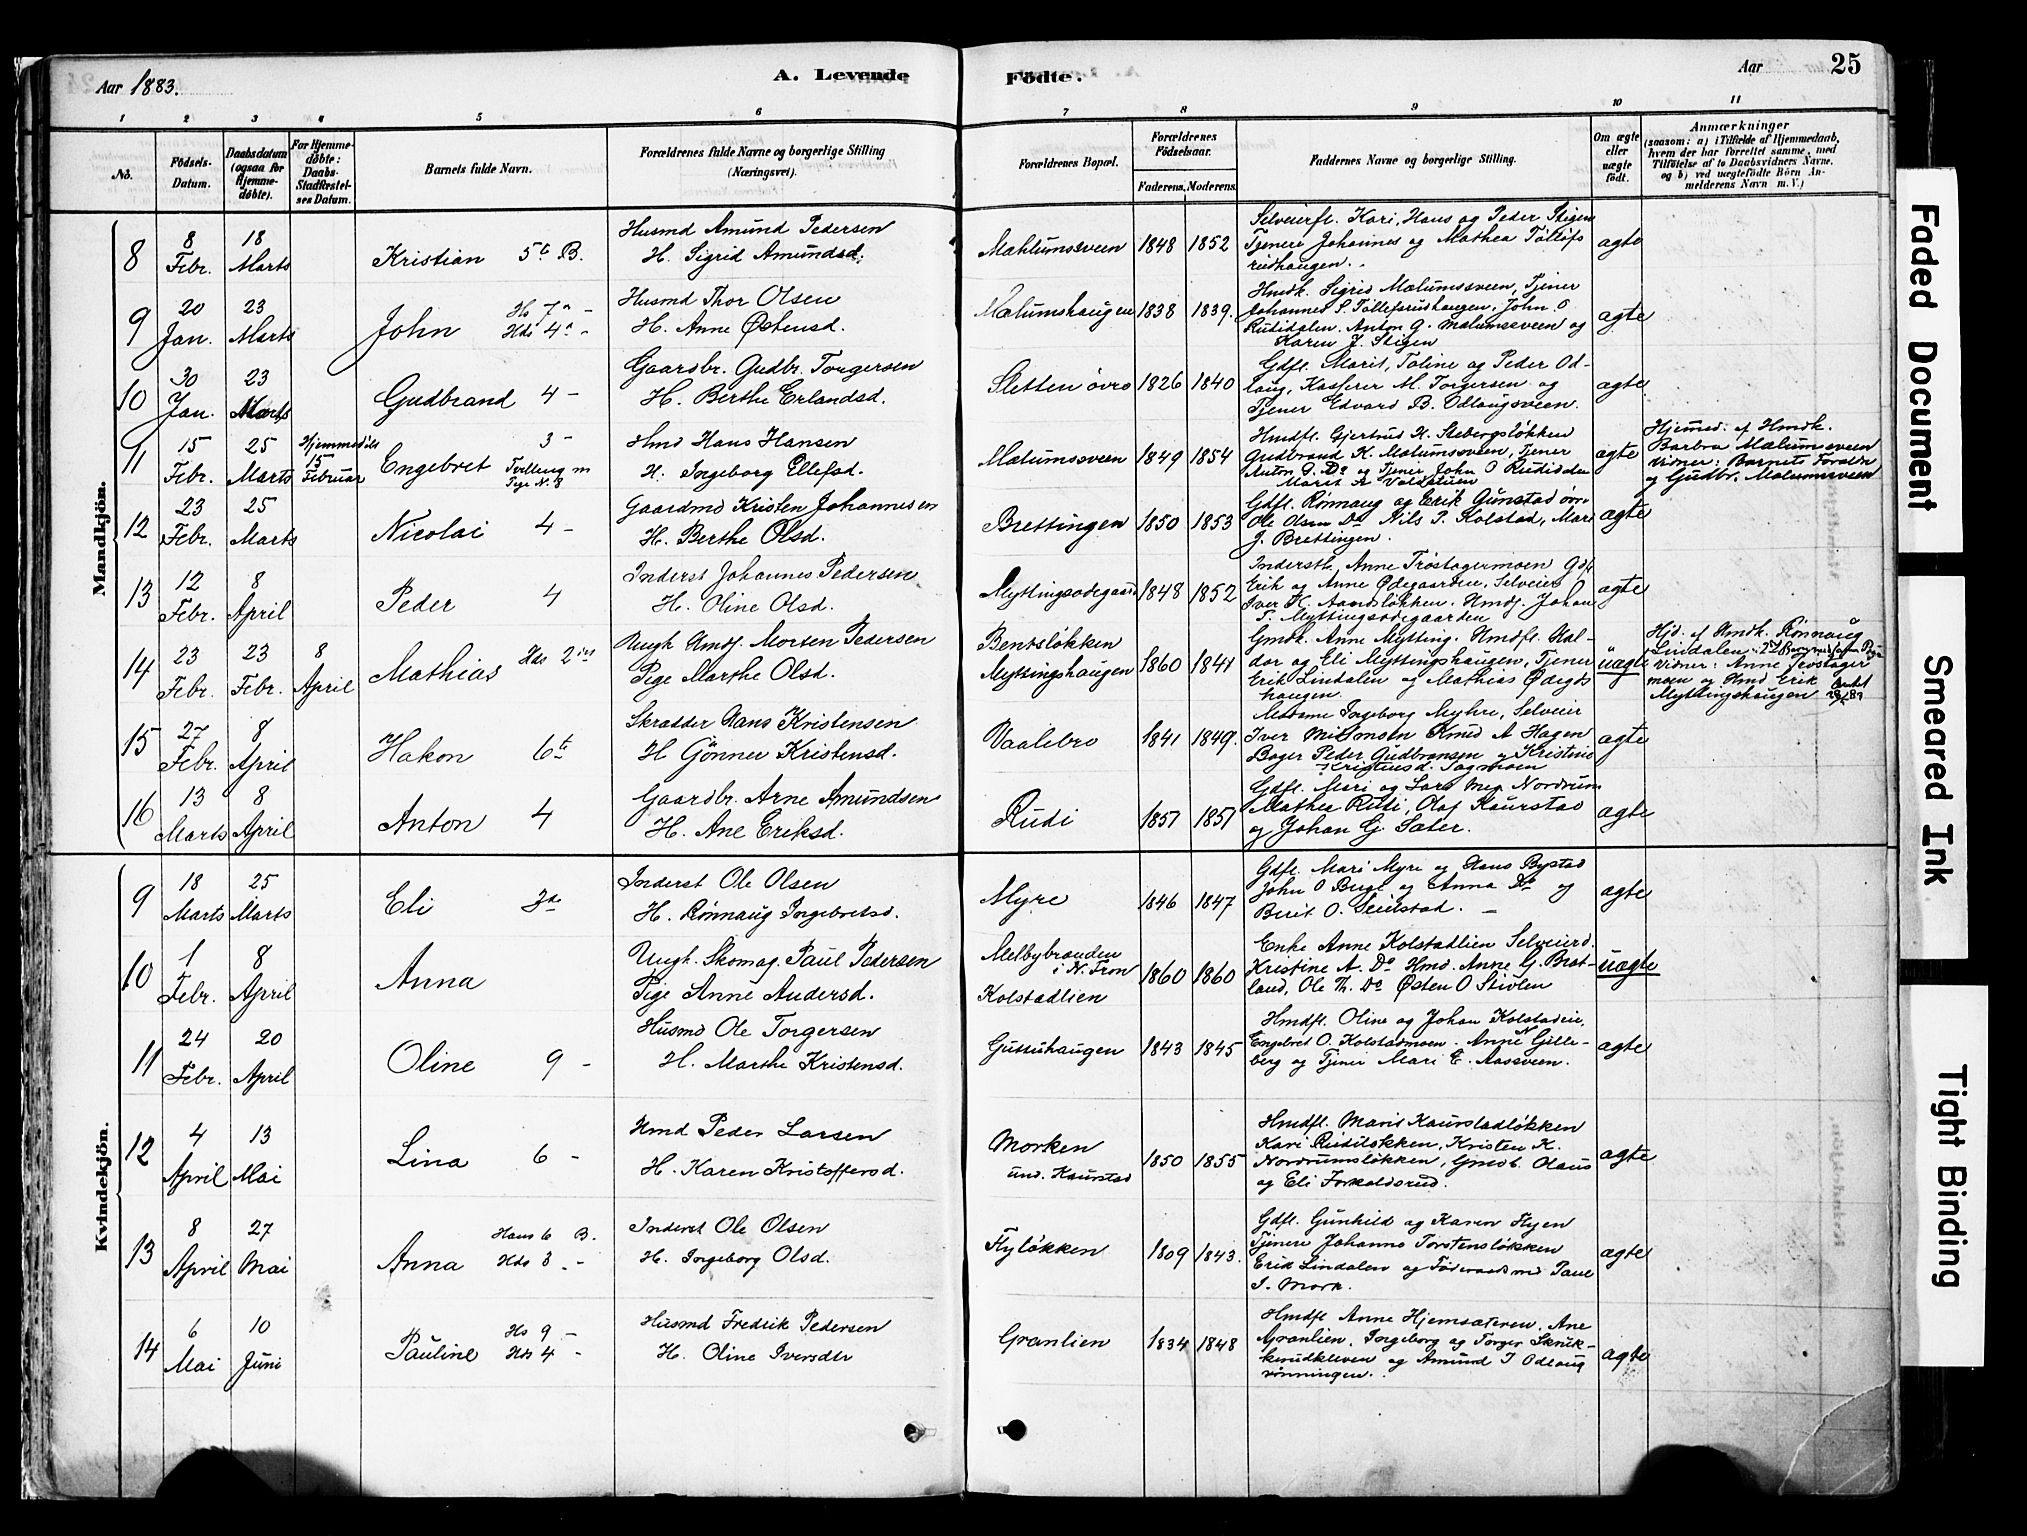 Aar 1883.
A. Levende
Födte.
Aar
25
1 2 3 4 5 6 7 8 9 10 11
No.
Födsels-Datum.
Daabsdatum (ogsaa for Hjemme-döbte).
For Hjemme-döbte: Daabs-Stadfæstel-ses Datum.
Barnets fulde Navn.
Forældrenes fulde Navne og borgerlige Stilling (Næringsvei).
Forældrenes Bopæl.
Forældrenes Födselsaar.
Faderens. Moderens.
Faddernes Navne og borgerlige Stilling.
Om ægte eller uægte födt.
Anmærkninger
(saasom: a) i Tilfælde af Hjemmedaab, hvem der har forrettet samme, med Tilföielse af to Daabsvidners Navne. og b) ved uægtefödte Börn Anmelderens Navn m. V.)
Mandkjön.
8 8 Febr. 18 Marts Kristian 5te B.
Husmd Amund Pedersen
H. Sigrid Amundsd.
Mahlumsveen 1848 1852
Selveierfl. Kari, Hans og Peder Stigen
Tjenere Johannes og Mathea Tollefs
rudhaugen.
ægte
9 20 Jan. 23 Marts John Hs 7de - Hds 4de -
Husmd Thor Olsen
H. Anne Østensd.
Mælumshaugen 1838 1839.
Hmdk. Sigrid Mælumsveen, Tjener
Johannes S. Tollefsrudhaugen, John O
Rudidalen. Anton G. Mælumsveen og
Karen J. Stigen
ægte
10 30 Jan. 23 Marts Gudbrand 4 -
Gaardbr. Gudbr. Torgersen
H. Berthe Erlandsd.
Sletten øvre 1826 1840
Gdfl. Marit, Toline og Peder Od-
laug, Kasserer M. Torgersen og
Tjener Edvard B. Odlaugsveen.
ægte
11 15 Febr. 25 Marts Hjemmedöbt 15 Februar Engebret 3 - Tvilling m Pige N. 8
Hmd Hans Hansen
H. Ingeborg Ellefsd.
Mælumsveen 1849 1854
Hmdfl. Gjertrud H. Stebergsløkken
Gudbrand K. Mælumsveen, Tjener
Anton G. Do og Tjener John O Rudidalen
ægte
Hjemmed. af Hmdk.
Barbra Mælumsveen
Vidner: Barnets Forældre
og Gudbr. Mælumsveen
12 23 Febr. 25 Marts Nicolai 4 -
Gaardmd Kristen Johannesen
H. Berthe Olsd.
Brettingen 1850 1853
Gdfl. Rønnaug og Erik Gunstad øvre
Ole Olsen Do Nils P. Kolstad, Mari
J. Brettingen.
ægte
13 12 Febr. 8 April Peder 4
Inderst Johannes Pedersen
H. Oline Olsd.
Myttingsødegaard 1848 1852
Indersth. Anne Trøstagermoen Gdfl
Erik og Anne Ødegaarden, Selveier
Iver K. Aandsløkken. Hmdf. Johan
T. Myttingsødegaarden
ægte
14 23 Febr. 23 Febr. 8 April Mathias Hds 2det
Ungk Hmdf. Morten Pedersen
Pige Marthe Olsd.
Bentsløkken
Myttingshaugen 1860 1841
Gmdk. Anne Mytting. Hmdfl. Hal-
dor og Eli Myttingshaugen, Tjener
Erik Lindalen og Mathias Ødegds
haugen.
uægte
Hjd. af Hmdk. Rønnaug
Lindalen.
Vidner: Anne Trøstager
moen og Hmd Erik
Myttingshaugen
15 27 Febr. 8 April Hakon 6te
Skrædder Hans Kristensen
H Gönner Kristensd.
Vaalebro 1841 1849.
Madame Ingeborg Myhre, Selveier
Iver Moemoen Knud A Hagen
Bager Peder Gudbransen og Kristine
Kristensd. Sagmoen
ægte
16 13 Marts 8 April Anton 4
Gaardbr. Arne Amundsen
H. Ane Eriksd.
Rudi 1857 1857
Gdfl. Mari og Lars Nordrum
Mathea Rudi, Olaf Kaurstad
og Johan G. Sæter.
ægte
Kvindekjön.
9 18 Marts 25 Marts Eli 3de
Inderst Ole Olsen
H. Rønnaug Ingebretsd.
Myre 1846 1847
Gdfl. Mari Myre og Hans Bystad
John O Brugl og Anna Do og
Berit O. Seielstad.
ægte
10 1 Febr. 8 April Anna
Ungk. Skomag. Paul Pedersen
Pige Anne Andersd.
Melbybraaden
i N. Fron
Kolstadlien 1860 1860
Enke Anne Kolstadlien Selveierd.
Kristine A. Do Hmd. Anne G. Brat-
land, Ole Th. Do Østen O Stivlen
uægte
11 24 Febr. 20 April Oline 9 -
Husmd Ole Torgersen
H. Marthe Kristensd.
Gutuhaugen 1843 1845
Hmdfl. Oline og Johan Kolstadeie,
Engebret O. Kolstadmoen. Anne N Gille-
berg og Tjener Mari E. Aasveen.
ægte
12 4 April 13 Mai Lina 6 -
Hmd Peder Larsen
H. Karen Kristoffersd.
Morken
und. Kaurstad 1850 1855
Hmdfl. Marit Kaurstadløkken
Kari Rudiløkken, Kristen K.
Nordrumsløkken, Gmdk. Olaus
og Eli Forkalsrud.
ægte
13 8 April 27 Mai Anna Hans 6 B. Hds 3 -
Inderst Ole Olsen
H. Ingeborg Olsd.
Flyløkken 1809 1843.
Gdfl. Gunhild og Karen Flyen
Tjenere Johanne Torstensløkken
Erik Lindalen og Føderaadsmd Paul
I. Mork.
ægte
14 6 Mai 10 Juni Pauline Hs 9 - Hds 4 -
Husmd Fredrik Pedersen
H. Oline Iversdtr
Granlien 1834 1848
Hmdfl Anne Hjemsæteren, Ane
Granlien, Ingeborg og Torger Skruk-
kerudkleven og Amund I Odlaug
rønningen.
ægte
Faded Document
Smeared Ink
Tight Binding